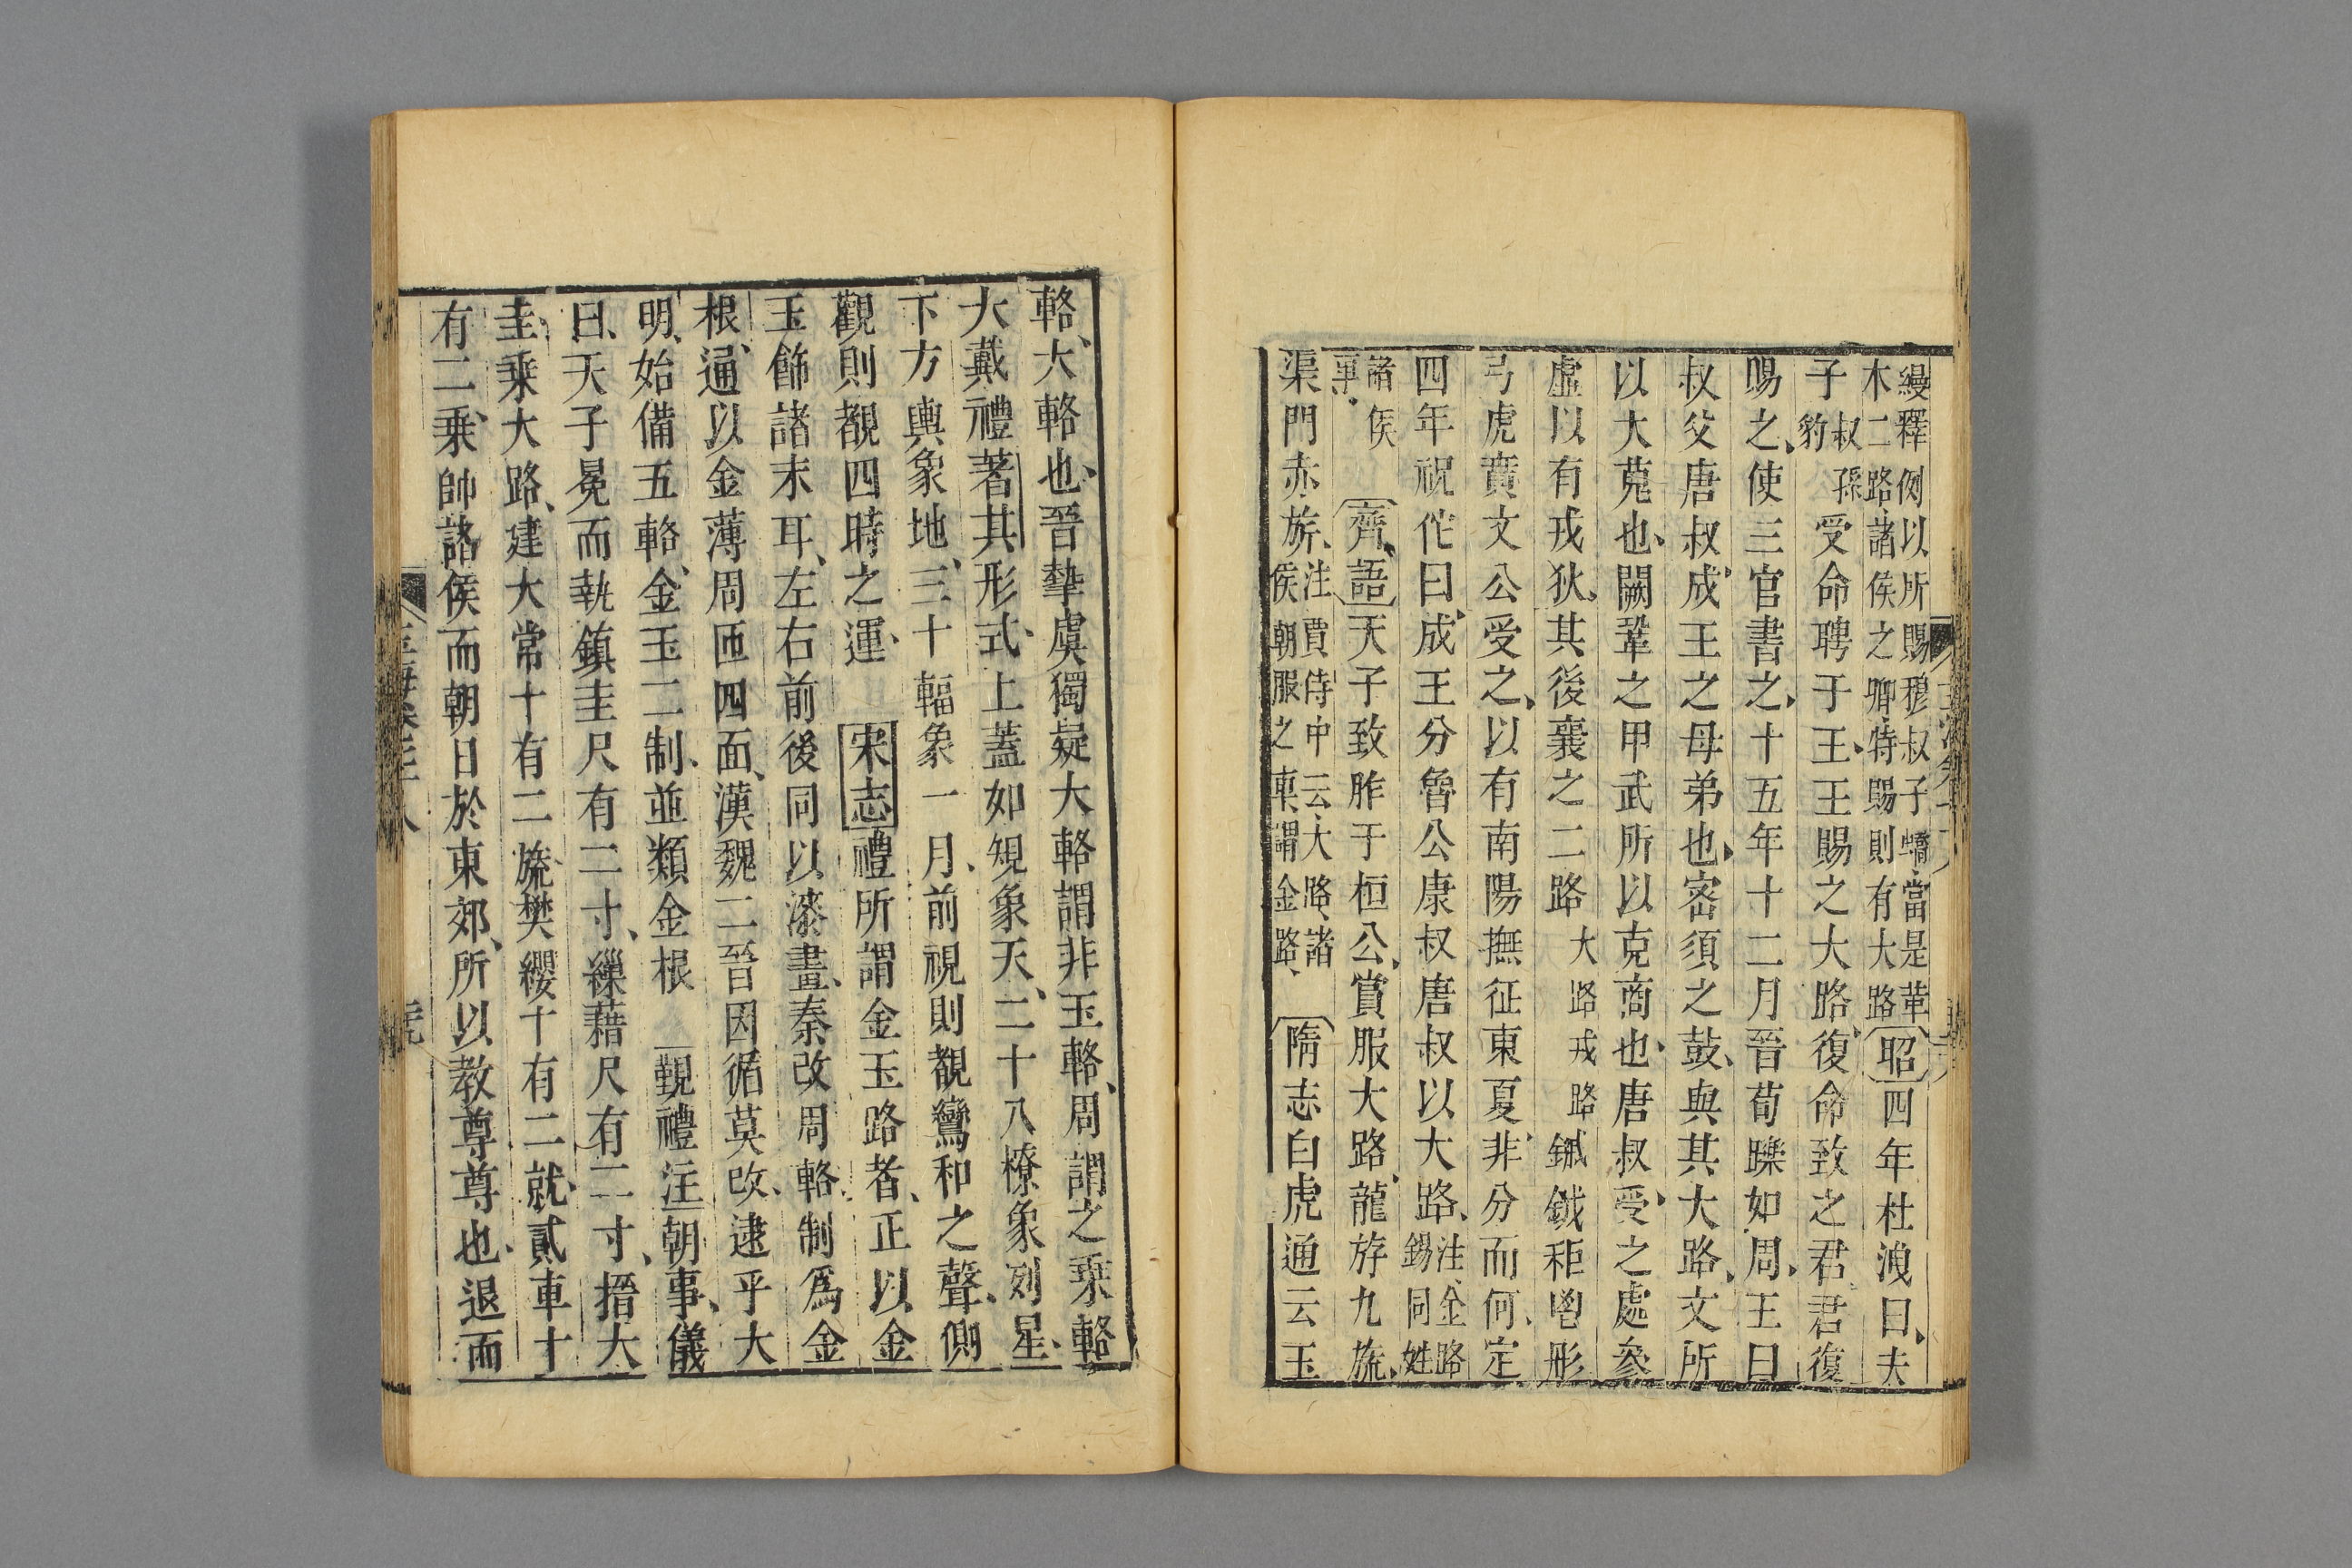 縵釋例以所賜穆叔子蟜當是革
木二路諸侯之卿特賜則有大路昭四年杜洩曰夫
子叔孫豹受命聘于王王賜之大路復命致之君君復
賜之使三官書之十五年十二月晉荀躒如周王曰
叔父唐叔成王之母弟也密須之鼓與其大路文所
以大蒐也闕鞏之甲武所以克商也唐叔受之處參
虛以有戎狄其後襄之二路大路戎路鏚鉞秬鬯彤
弓虎賁文公受之以有南陽撫征東夏非分而何定
四年祝佗曰成王分魯公康叔唐叔以大路注金路
錫同姓
諸侯
車齊語天子致胙于桓公賞服大路龍旂九旒
渠門赤旂注賈侍中云大路諸
侯朝服之車謂金路隋志白虎通云玉
輅大輅也晉摯虞獨疑大輅謂非玉輅周謂之乘輅
大戴禮著其形式上蓋如規象天二十八橑象列星
下方輿象地三十輻象一月前視則覩鸞和之聲側
觀則覩四時之運宋志禮所謂金玉路者正以金
玉飾諸末耳左右前後同以漆畫秦改周輅制爲金
根通以金薄周匝四面漢魏二晉因循莫改逮乎大
明始備五輅金玉二制並類金根覲禮注朝事儀
曰天子冕而執鎮圭尺有二寸繅藉尺有二寸搢大
圭乘大路建大常十有二旒樊纓十有二就貳車十
有二乘帥諸侯而朝日於東郊所以教尊尊也退而